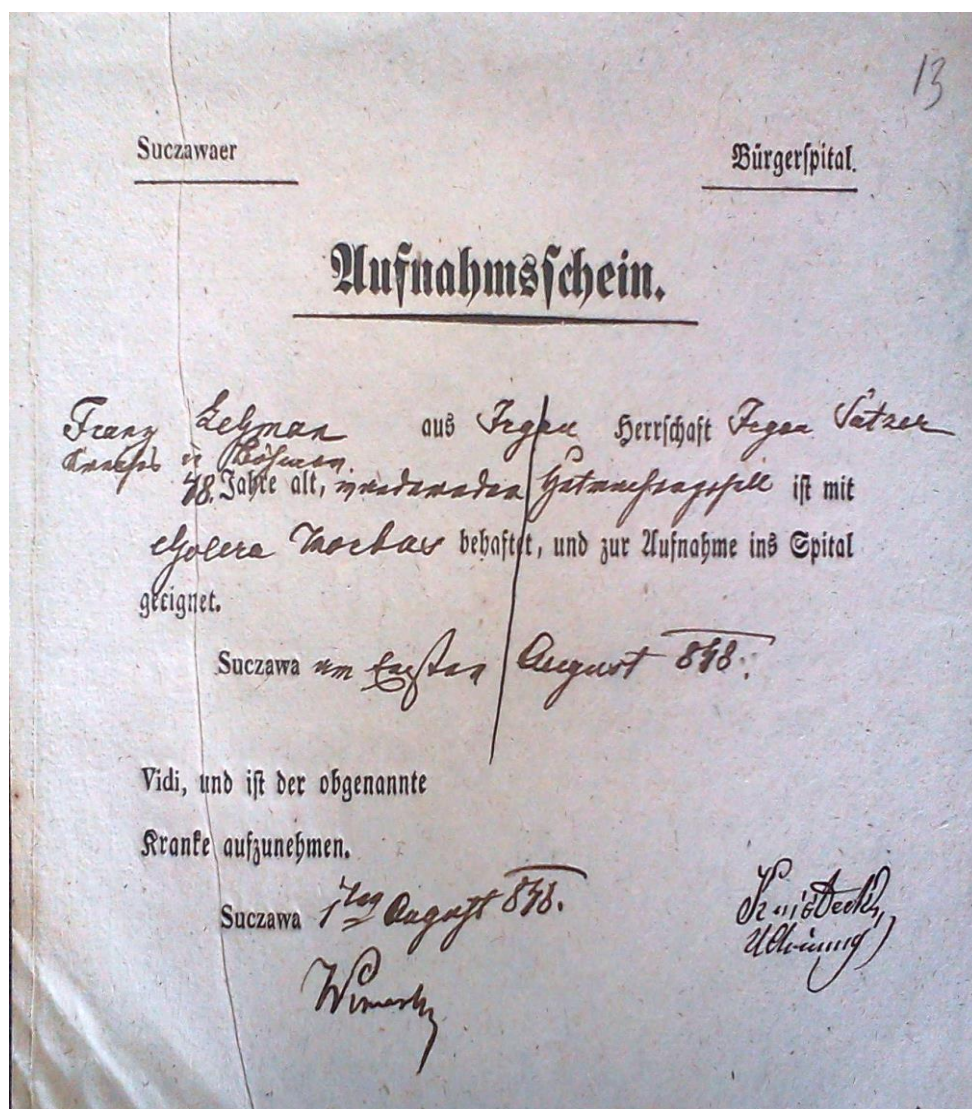 13
Suczawaer Bürgerspital.
Aufnahmsschein.
Franz Lehman aus Herrschaft Satzer
Kreises in Böhmen.
48. Jahre alt, ist mit
Cholera Morbus behaftet, und zur Aufnahme ins Spital
geeignet.
Suczawa am Ersten August 848.
Vidi, und ist der obgenannte
Kranke aufzunehmen.
Suczawa August 848.